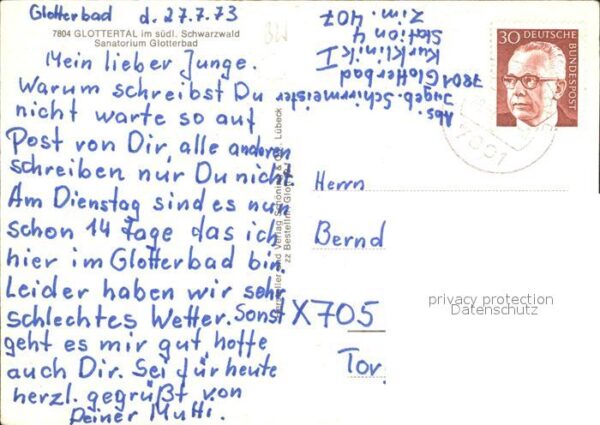 Glotterbad d. 27.7.73
7804 GLOTTERTAL im südl. Schwarzwald
Sanatorium Glotterbad
Mein lieber Junge.
Warum schreibst Du
nicht warte so auf
Post von Dir, alle anderen
schreiben nur Du nicht.
Am Dienstag sind es nun
schon 14 Tage das ich
hier im Glotterbad bin.
Leider haben wir sehr
schlechtes Wetter. Sonst
geht es mir gut, hoffe
auch Dir. Sei für heute
herzl. gegrüßt von
Deiner Mutti.
Abs.
Ingeb. Schirrmeister
7801 Glotterbad
Kurklinik I
Station 4
Zim. 407
Hersteller und Verlag Schöning & Co., Lübeck
zz Bestellnr. Glott
30 DEUTSCHE
BUNDESPOST
7801
Herrn
Bernd
X705
Tor.
privacy protection
Datenschutz